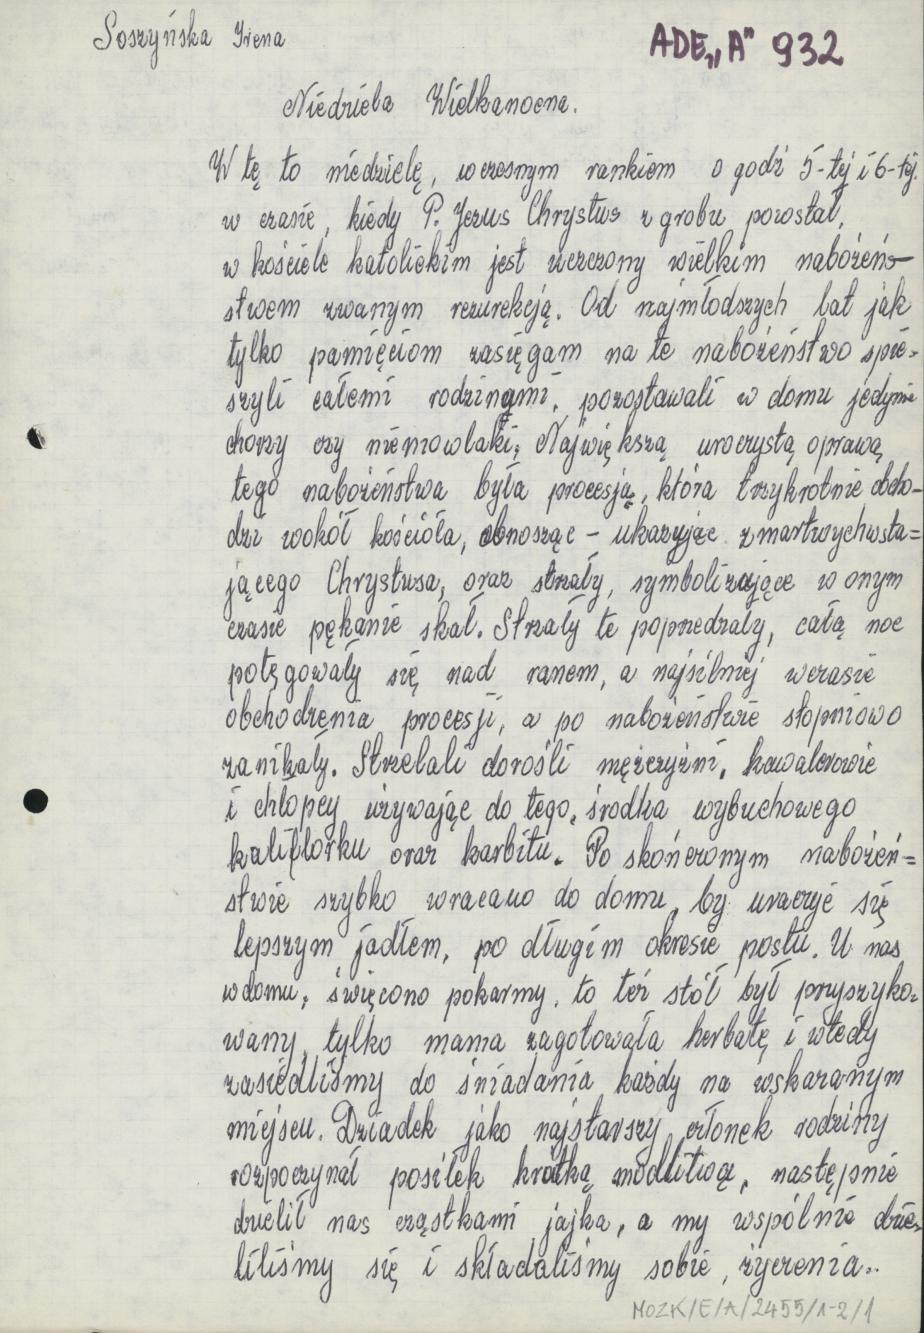 Soszyńska Irena
ADE„A" 932
Niedziela Wielkanocna.
W tę to niedzielę, wczesnym rankiem o godź 5-tej i 6-tej.
w czasie, kiedy P. Jezus Chrystus z grobu powstał,
w kościele katolickim jest uczczony wielkim nabożeń-
stwem zwanym rezurekcją. Od najmłodszych lat jak
tylko pamięciom zasięgam na te nabożeństwo spie-
szyli całemi rodzinami, pozostawali w domu jedynie
chorzy czy niemowlaki. Największą uroczystą oprawą
tego nabożeństwa była procesja, która trzykrotnie obcho-
dzi wokół kościoła, obnosząc - ukazując zmartwychwsta=
jącego Chrystusa, oraz strzały, symbolizujące w onym
czasie pękanie skał. Strzały te poprzedzały, całą noc
potęgowały się nad ranem, a najsilniej wczasie
obchodzenia procesji, a po nabożeństwie stopniowo
zanikały. Strzelali dorośli mężczyźni, kawalerowie
i chłopcy używając do tego, środka wybuchowego
kaliflorku oraz karbitu. Po skończonym nabożeń=
stwie szybko wracano do domu, by uraczyć się
lepszym jadłem, po długim okresie postu. U nas
w domu, święcono pokarmy, to też stół był przyszyko-
wany, tylko mama zagotowała herbatę i wtedy
zasiedliśmy do śniadania każdy na wskazanym
miejscu. Dziadek jako najstarszy członek rodziny
rozpoczynał posiłek krótką modlitwą, następnie
dzielił nas cząstkami jajka, a my wspólnie dzie-
liliśmy się i składaliśmy sobie, życzenia..
MOZK/E/A/2455/1-2/1